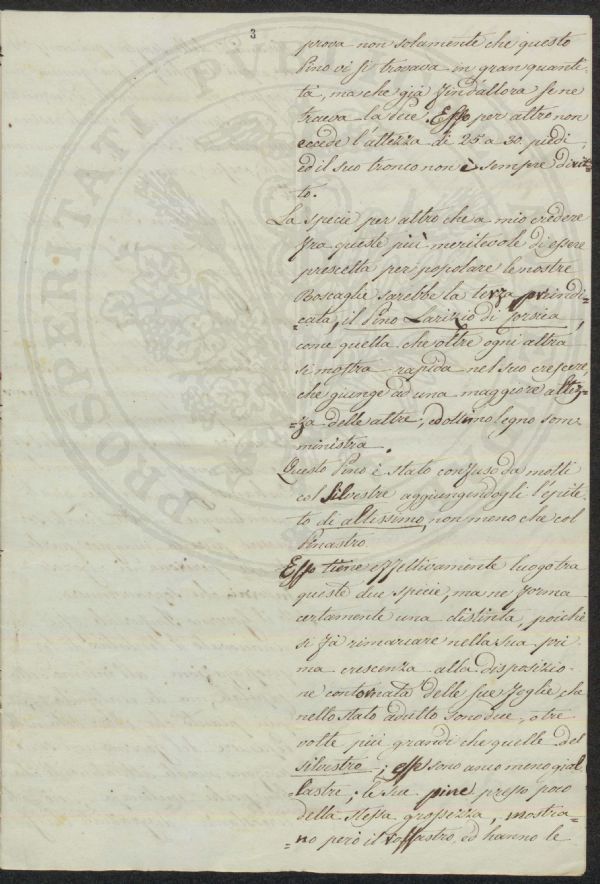 3
prova non solamente che questo
Pino vi si trovava in gran quanti-
tà, ma che già sin d'allora se ne
traeva la Pece. Esso per altro non
eccede l'altezza di 25 a 30. piedi,
ed il suo tronco non è sempre dirit-
to.
La specie per altro che a mio credere
fra queste più meritevole di essere
prescelta per popolare le nostre
Boscaglie sarebbe la terza preindi-
=cata, il Pino Larizio di Corsica,
come quella che oltre ogni altra
si mostra rapida nel suo crescere,
che giunge ad una maggiore altez-
=za delle altre, ed ottimo legno som-
ministra.
Questo Pino è stato confuso da molti
col Silvestre aggiungendogli l'epite-
to di altissimo, non meno che col
Pinastro.
Esso tiene effettivamente luogo tra
queste due specie, ma ne forma
certamente una distinta, poichè
si fa rimarcare nella sua pri-
ma crescenza alla disposizio-
ne contornata delle sue foglie che
nello stato adulto sono due, o tre
volte più grandi che quelle del
silvestro; esse sono anco meno gial-
lastre; le sue pine presso poco
della stessa grossezza, mostra-
=no però il rossastro, ed hanno le
PROSPERITATI PUBL